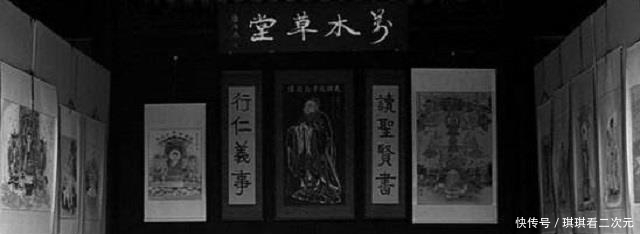 萬木草堂
讀聖賢書
行仁義事
快传号 / 琪琪看二次元